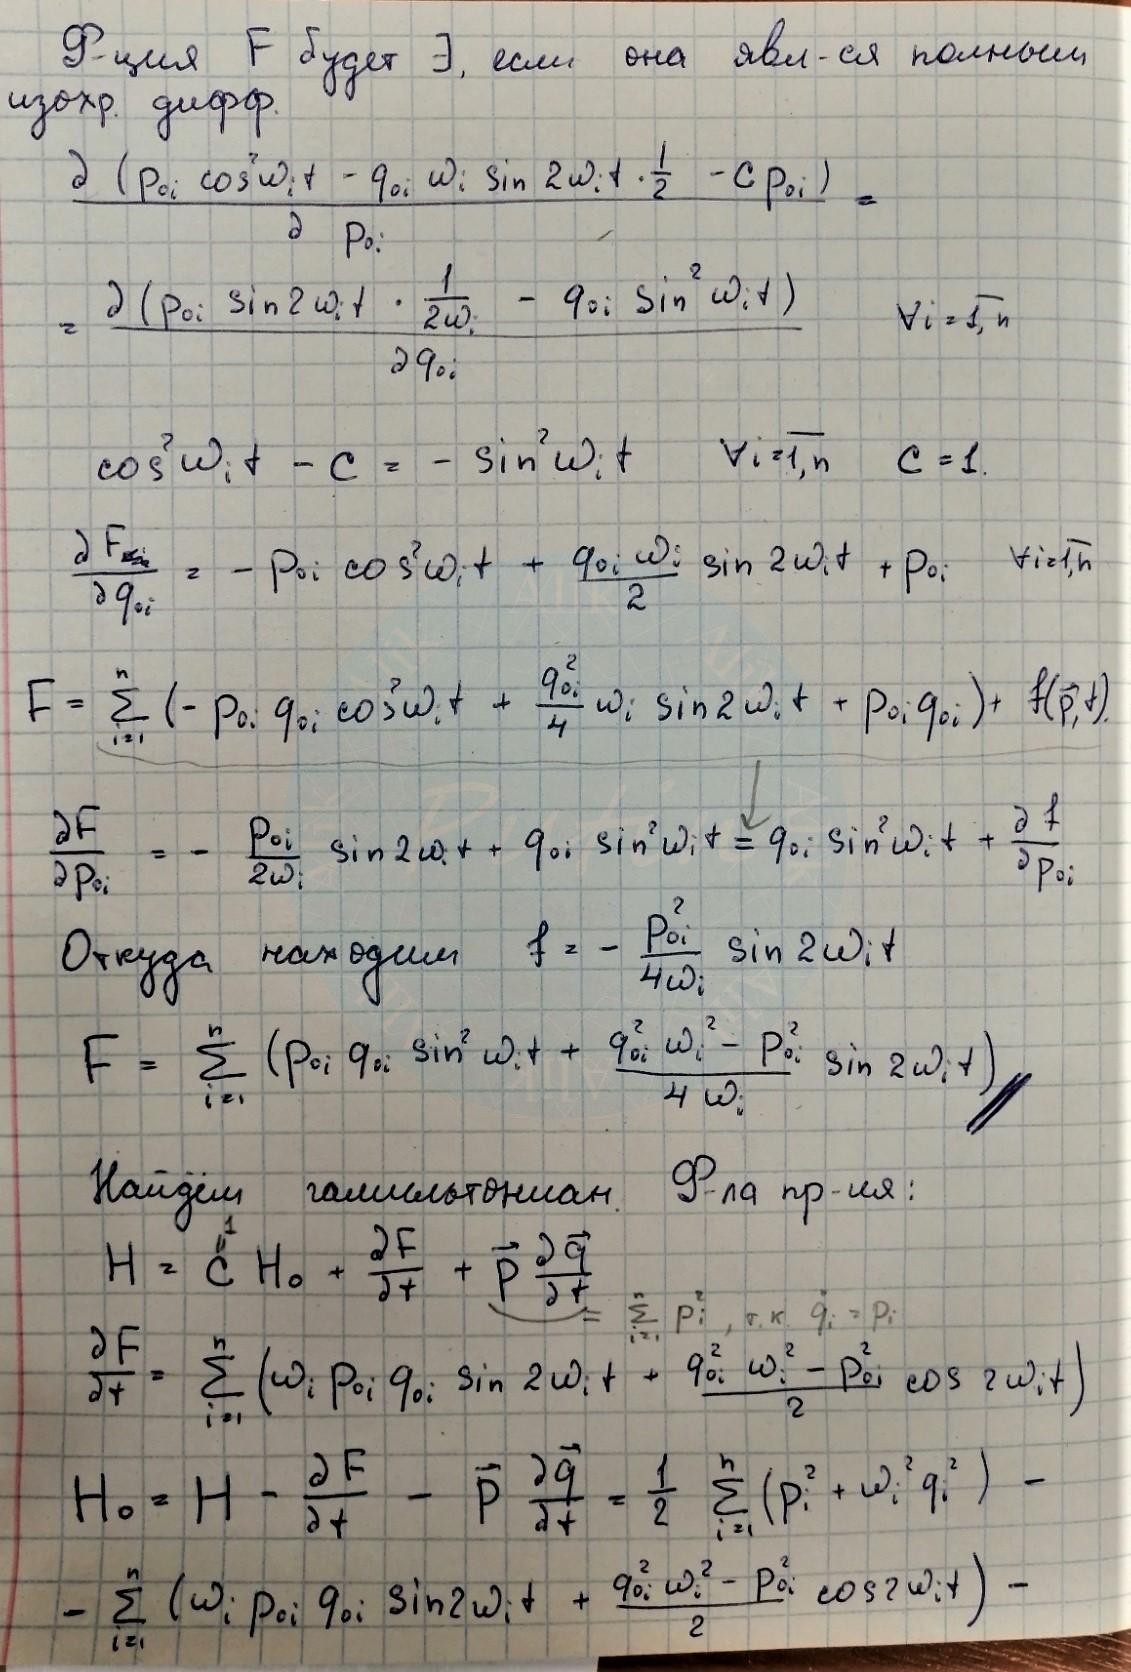 Ф-ция F будет ∃, если она явл-ся полным
изохр. дифф.
∂ (p₀ᵢ cos²ωᵢt - q₀ᵢ ωᵢ sin 2ωᵢt · 1/2 - c p₀ᵢ) / ∂ p₀ᵢ =
= ∂ (p₀ᵢ sin 2ωᵢt · 1/2ωᵢ - q₀ᵢ sin²ωᵢt) / ∂q₀ᵢ ∀i = 1,n
cos²ωᵢt - c = - sin²ωᵢt ∀i=1,n c = 1.
∂F/∂q₀ᵢ = - p₀ᵢ cos²ωᵢt + q₀ᵢ ωᵢ/2 sin 2ωᵢt + p₀ᵢ ∀i=1,n
F = Σᵢ₌₁ⁿ (- p₀ᵢ q₀ᵢ cos²ωᵢt + q₀ᵢ²/4 ωᵢ sin 2ωᵢt + p₀ᵢ q₀ᵢ) + f(p⃗,t).
∂F/∂p₀ᵢ = - p₀ᵢ/2ωᵢ sin 2ωᵢt + q₀ᵢ sin²ωᵢt = q₀ᵢ sin²ωᵢt + ∂f/∂p₀ᵢ
Откуда находим f = - p₀ᵢ²/4ωᵢ sin 2ωᵢt
F = Σᵢ₌₁ⁿ (p₀ᵢ q₀ᵢ sin²ωᵢt + q₀ᵢ² ωᵢ² - p₀ᵢ²/4ωᵢ sin 2ωᵢt)
Найдём гамильтониан. Ф-ла пр-ия:
H = c H₀ + ∂F/∂t + p⃗ ∂q⃗/∂t
= Σᵢ₌₁ⁿ pᵢ², т.к. q̇ᵢ = pᵢ
∂F/∂t = Σᵢ₌₁ⁿ (ωᵢ p₀ᵢ q₀ᵢ sin 2ωᵢt + q₀ᵢ² ωᵢ² - p₀ᵢ²/2 cos 2ωᵢt)
H₀ = H - ∂F/∂t - p⃗ ∂q⃗/∂t = 1/2 Σᵢ₌₁ⁿ (pᵢ² + ωᵢ² qᵢ²) -
- Σᵢ₌₁ⁿ (ωᵢ p₀ᵢ q₀ᵢ sin 2ωᵢt + q₀ᵢ² ωᵢ² - p₀ᵢ²/2 cos 2ωᵢt) -